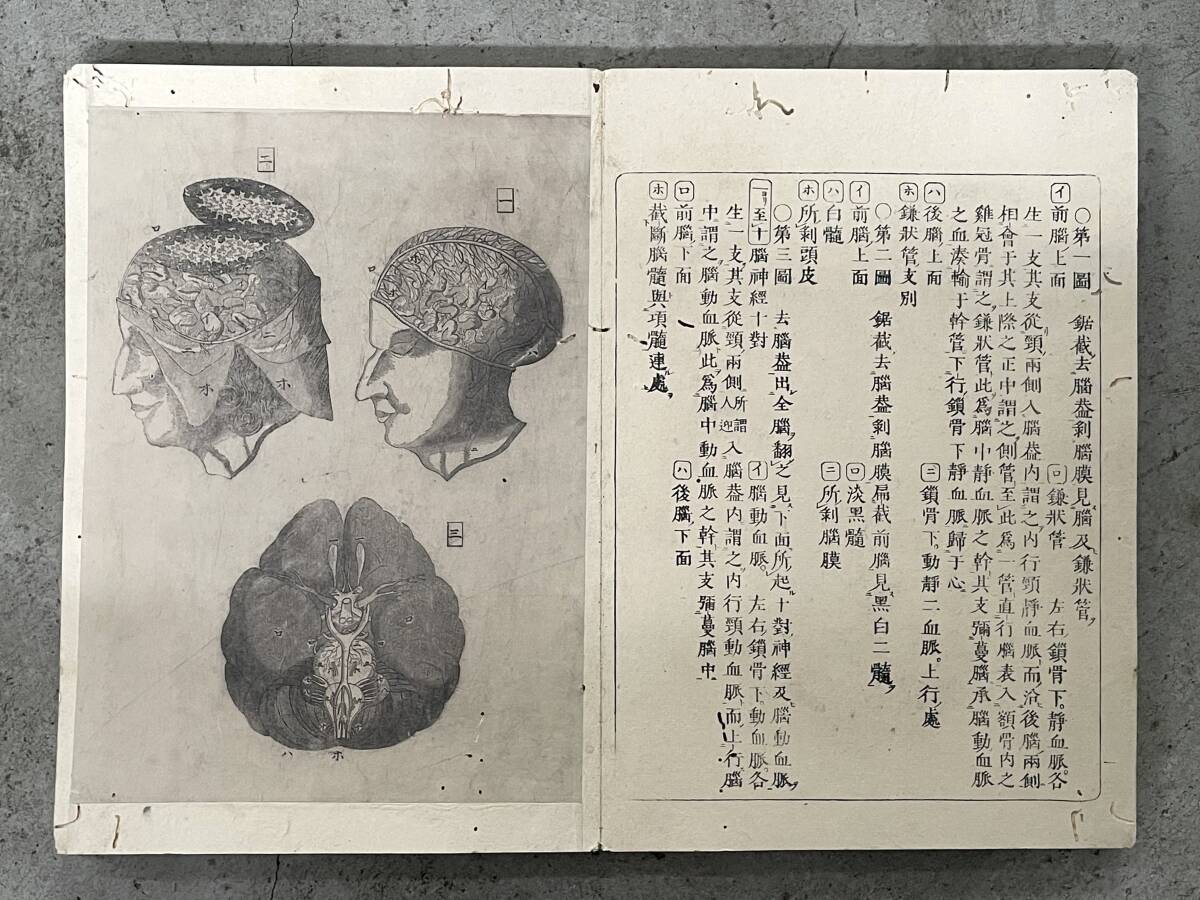 〇第一圖 鋸截去腦葢剥腦膜見腦及鎌狀管ヲ
イ 前腦ノ上面 ロ 鎌狀管 左右鎖骨下ノ靜血脈各
生一支其支從頸ノ兩側入腦葢内謂之内行頸靜血脈而沿後腦ノ兩側
相會于其上際之正中謂之側管至此爲一管直行腦表入額骨内之
雞冠骨謂之鎌狀管此爲腦中靜血脈之幹其支彌蔓腦承腦動血脈
之血湊輸于幹管下行鎖骨下靜血脈歸于心
ハ 後腦ノ上面 ニ 鎖骨下ノ動靜二血脈ノ上行ノ處
ホ 鎌狀管ノ支別
〇第二圖 鋸截去腦葢剥腦膜扁截前腦見黑白二髓ヲ
イ 前腦ノ上面 ロ 淡黑髓
ハ 白髓 ニ 所剥腦膜
ホ 所剥頭皮
〇第三圖 去腦葢出全腦翻之見下面所起十對神經及腦動血脈ヲ
一ヨリ至十 腦神經十對 イ 腦動血脈 左右鎖骨下ノ動血脈各
生一支其支從頸ノ兩側所謂人迎入腦葢内謂之内行頸動血脈而上行腦
中謂之腦動血脈此爲腦中動血脈之幹其支彌蔓腦中
ロ 前腦ノ下面 ハ 後腦ノ下面
ホ 截斷腦髓與項髓連處ヲ
二
一
三
ロ
ホ
ホ
ホ
ハ
ニ
ロ
ロ
ハ
ホ